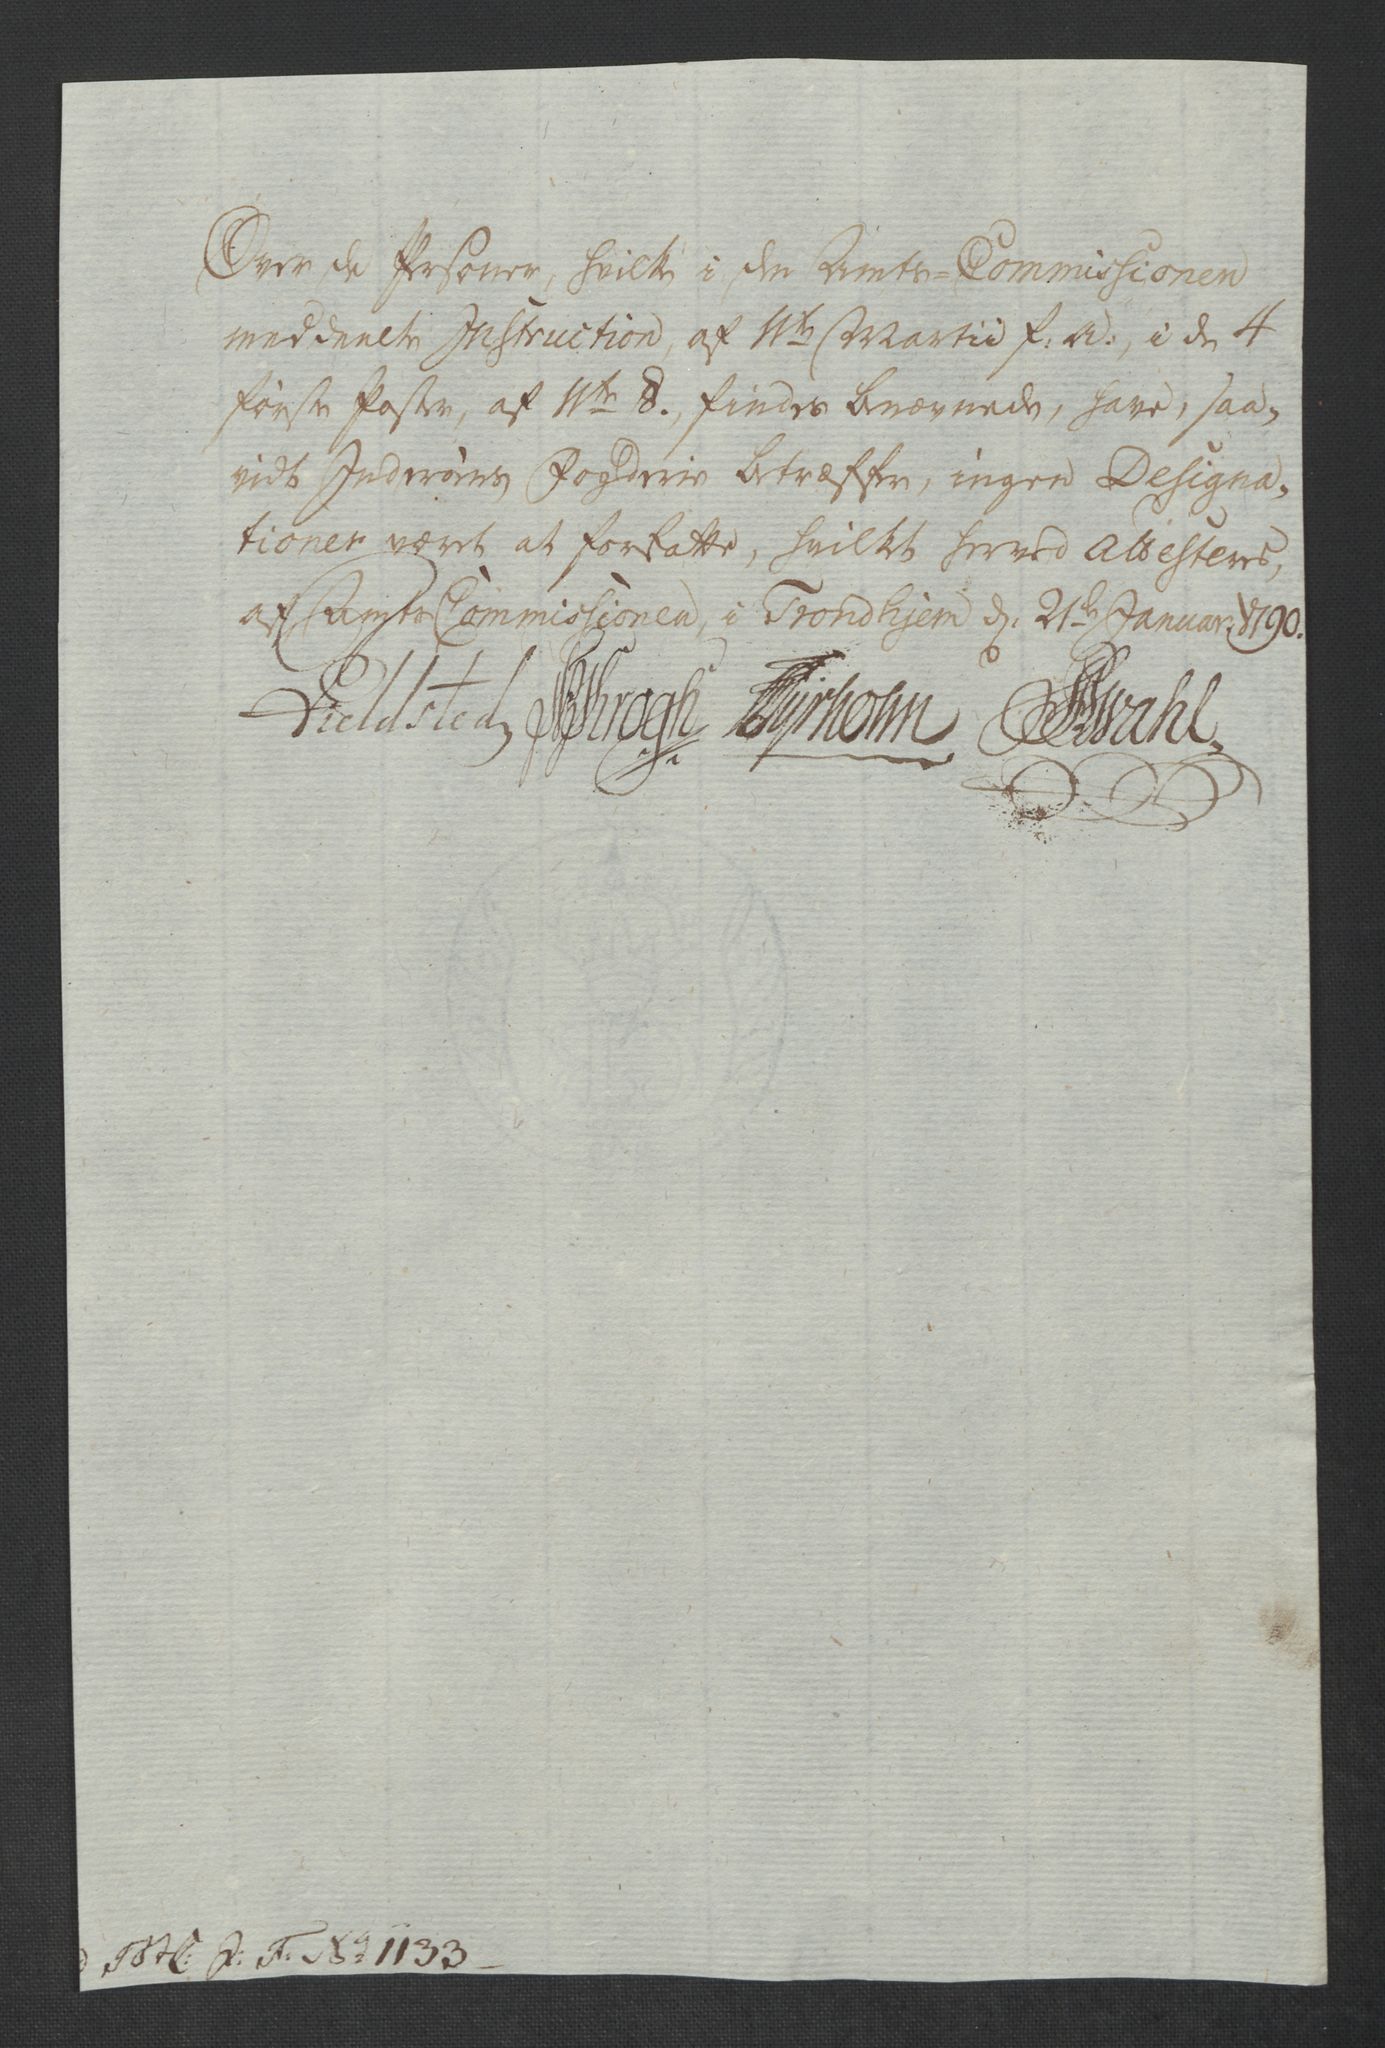 Over de Personer, hvilke i den Amts-Commissionen
meddeelte Instruction, af 11te Martii f: A:, i de 4
første Poster, af 11te §., findes benævnede, have, saa,
vidt Inderøens Fogderie betræffer, ingen Designa,
tioner været at forfatte, hvilket herved attesteres,
af Amts Commissionen, i Trondhjem d. 21de Januar: 1790.
Fieldsted Krogh Tyrholm Wahl
J: F: No 1133